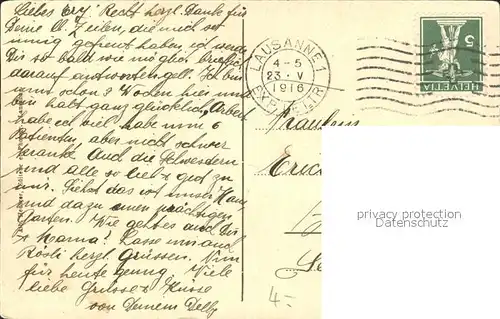 Liebes Erij! Recht herzl. Danke für
Deine ll. Zeilen, die mich so
innig gefreut haben, ich werde
Dir so bald wie möglich
darauf antworten gell. Ich bin
nun schon 3 Wochen hier und
bin halt ganz glücklich, Arbeit
habe ich viel, habe nun 6
Patienten, aber nicht schwer
kranke. Auch die Schwestern
sind alle so lieb & gut zu
mir. Siehst das ist unser Haus
und dazu einen prächtigen
Garten. Wie geht es auch Dir
& Mama? Lasse sie und
Rösli herzl. Grüssen. Nun
für heute genug. Viele
liebe Grüsse & Küsse
von Deinem Delly
LAUSANNE 1
4-5
23. V
1916
EXP. LETTR.
HELVETIA
5
Fräulein
4.-
privacy protection
Datenschutz